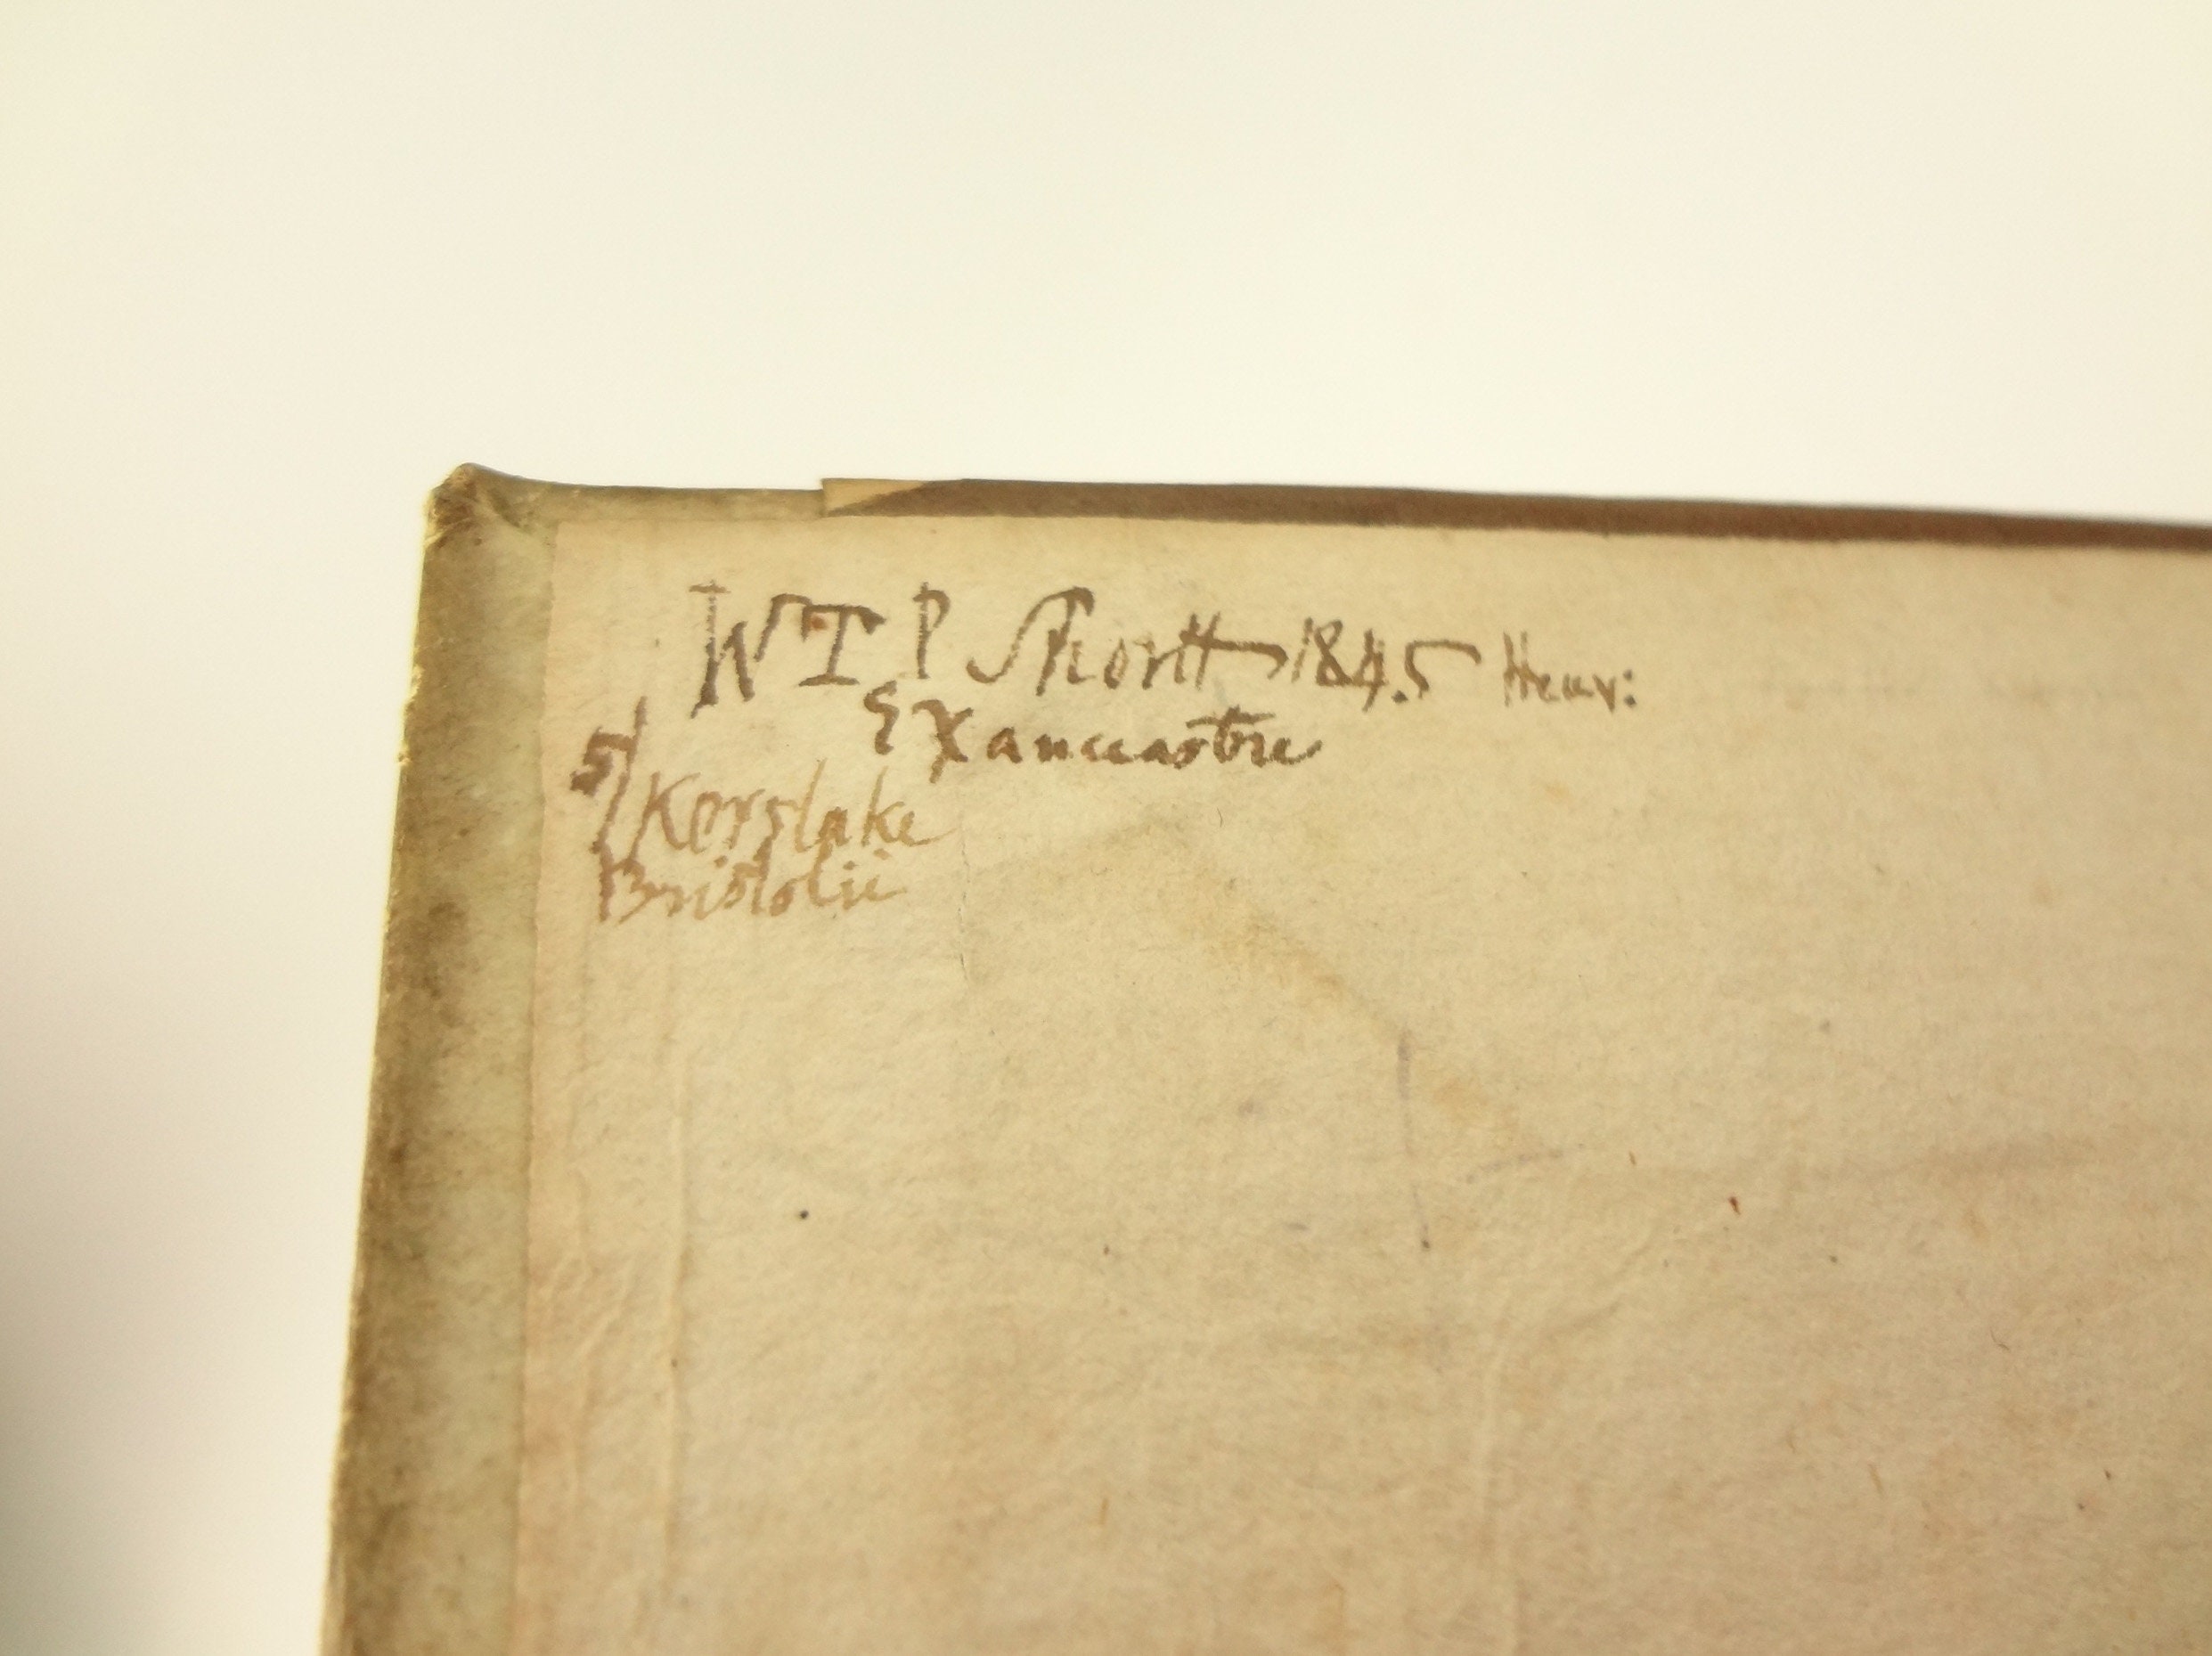 W T P Shortt 1845 Heav:
EXanceastre
5/ Kerslake
Bristolii